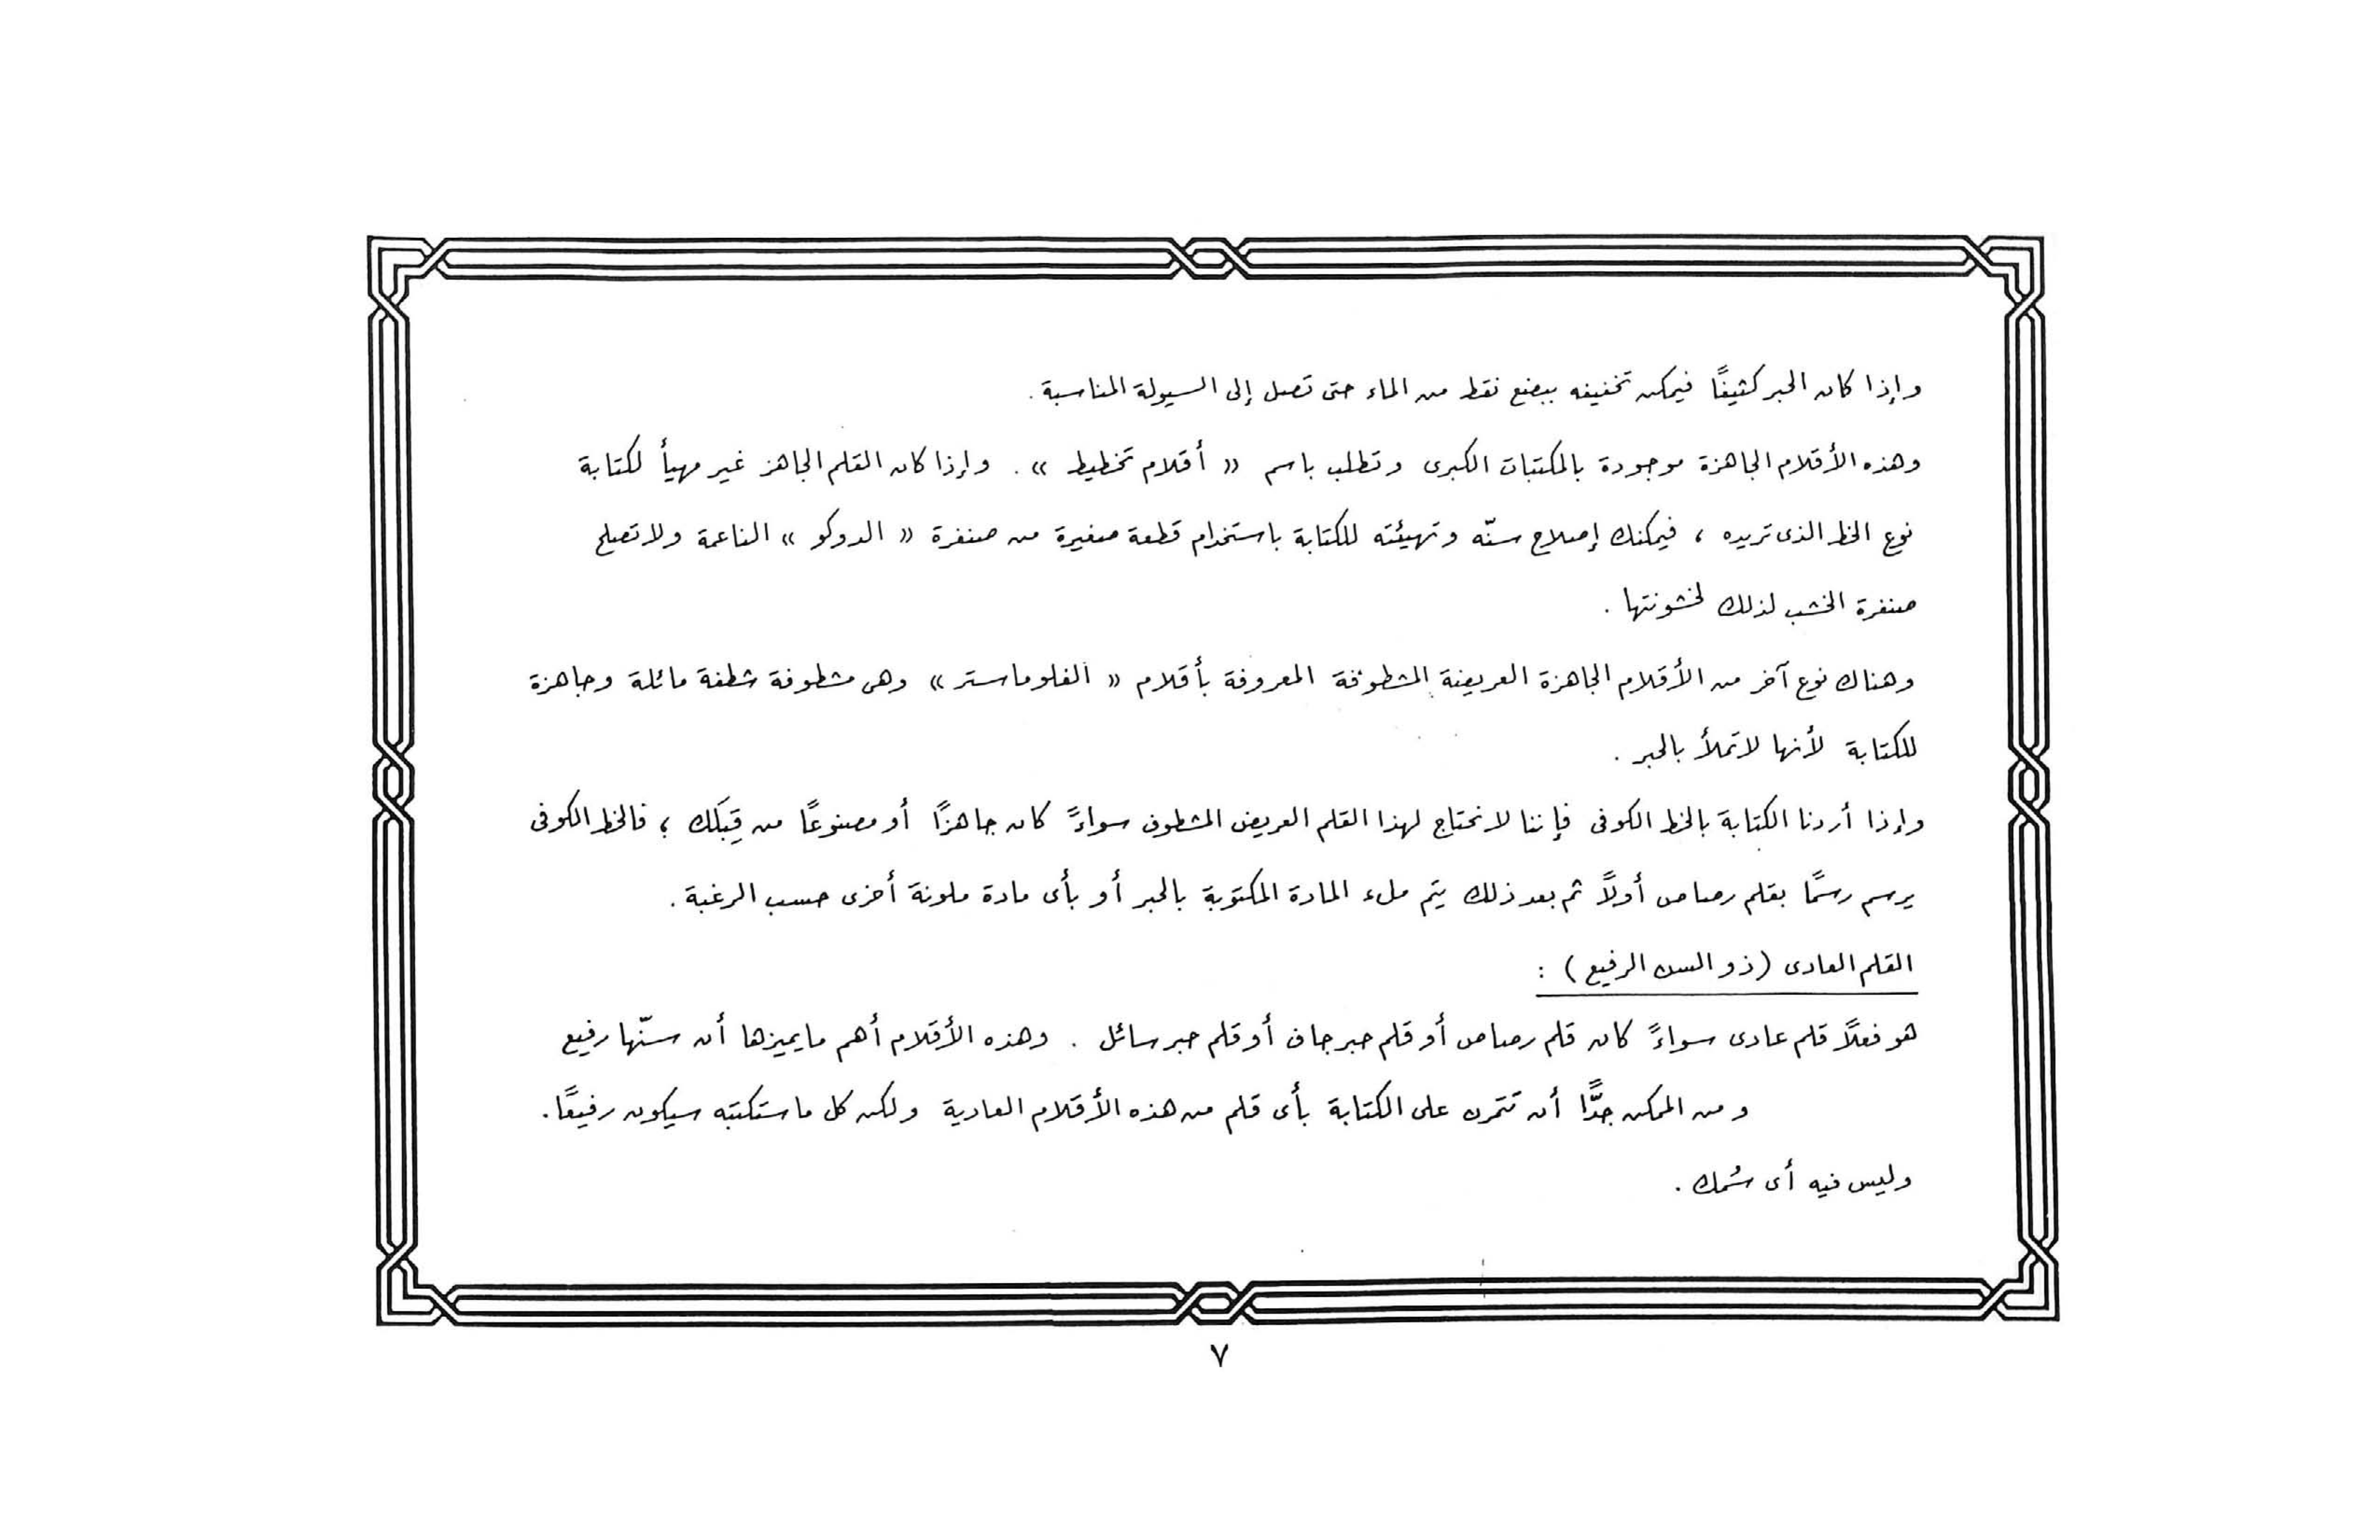 وإذا كان الحبر كثيفًا فيمكن تخفيفه ببضع نقط من الماء حتى تصل إلى السيولة المناسبة .
وهذه الأقلام الجاهزة موجودة بالمكتبات الكبرى وتطلب باسم « أقلام تخطيط » . وإذا كان القلم الجاهز غير مهيأ لكتابة
نوع الخط الذى تريده ، فيمكنك إصلاح سنّه وتهيئته للكتابة باستخدام قطعة صغيرة من صنفرة « الدوكو » الناعمة ولا تصلح
صنفرة الخشب لذلك لخشونتها .
وهناك نوع آخر من الأقلام الجاهزة العريضة المشطوفة المعروفة بأقلام « الفلوماستر » وهى مشطوفة شطفة مائلة وجاهزة
للكتابة لأنها لا تملأ بالحبر .
وإذا أردنا الكتابة بالخط الكوفى فإننا لا نحتاج لهذا القلم العريض المشطوف سواءً كان جاهزًا أو مصنوعًا من قِبَلك ؛ فالخط الكوفى
يرسم رسمًا بقلم رصاص أولاً ثم بعد ذلك يتم ملء المادة المكتوبة بالحبر أو بأى مادة ملونة أخرى حسب الرغبة .
القلم العادى (ذو السن الرفيع) :
هو فعلاً قلم عادى سواءً كان قلم رصاص أو قلم حبر جاف أو قلم حبر سائل . وهذه الأقلام أهم ما يميزها أن سنّها رفيع
ومن الممكن جدًّا أن تتمرن على الكتابة بأى قلم من هذه الأقلام العادية ولكن كل ما ستكتبه سيكون رفيعًا .
وليس فيه أى سُمك .
٧